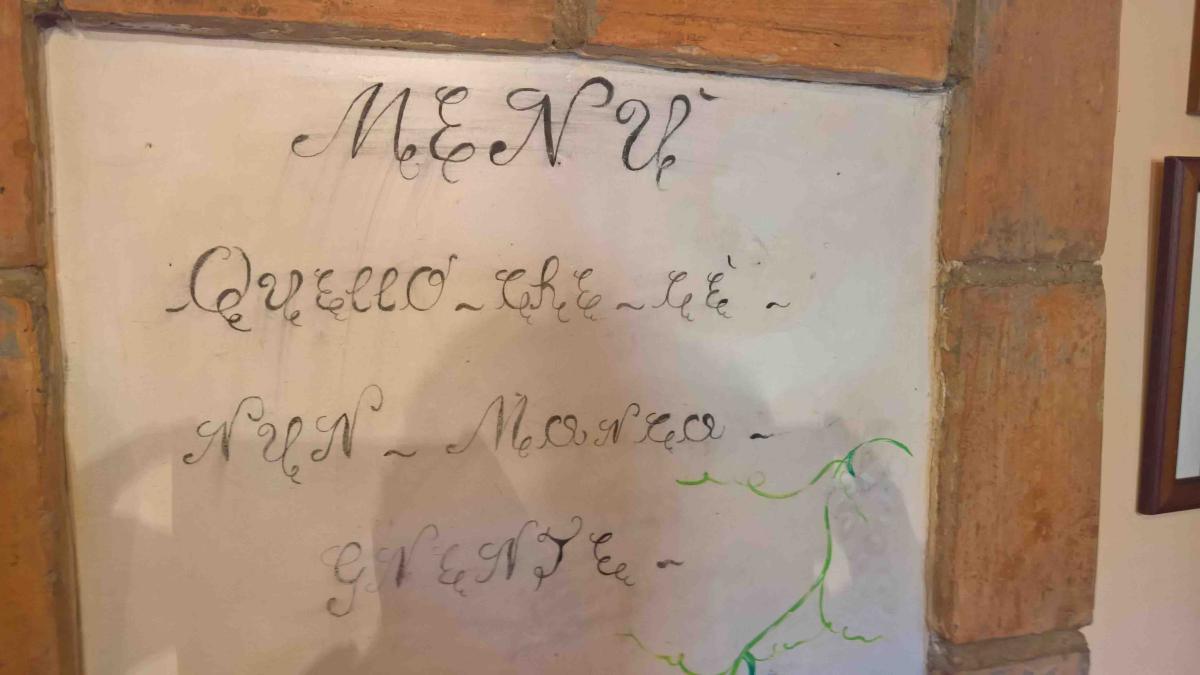 MENÙ
~ QUEllO ~ ChE ~ CÈ ~
NUN ~ MaNCa ~
GNENTE ~